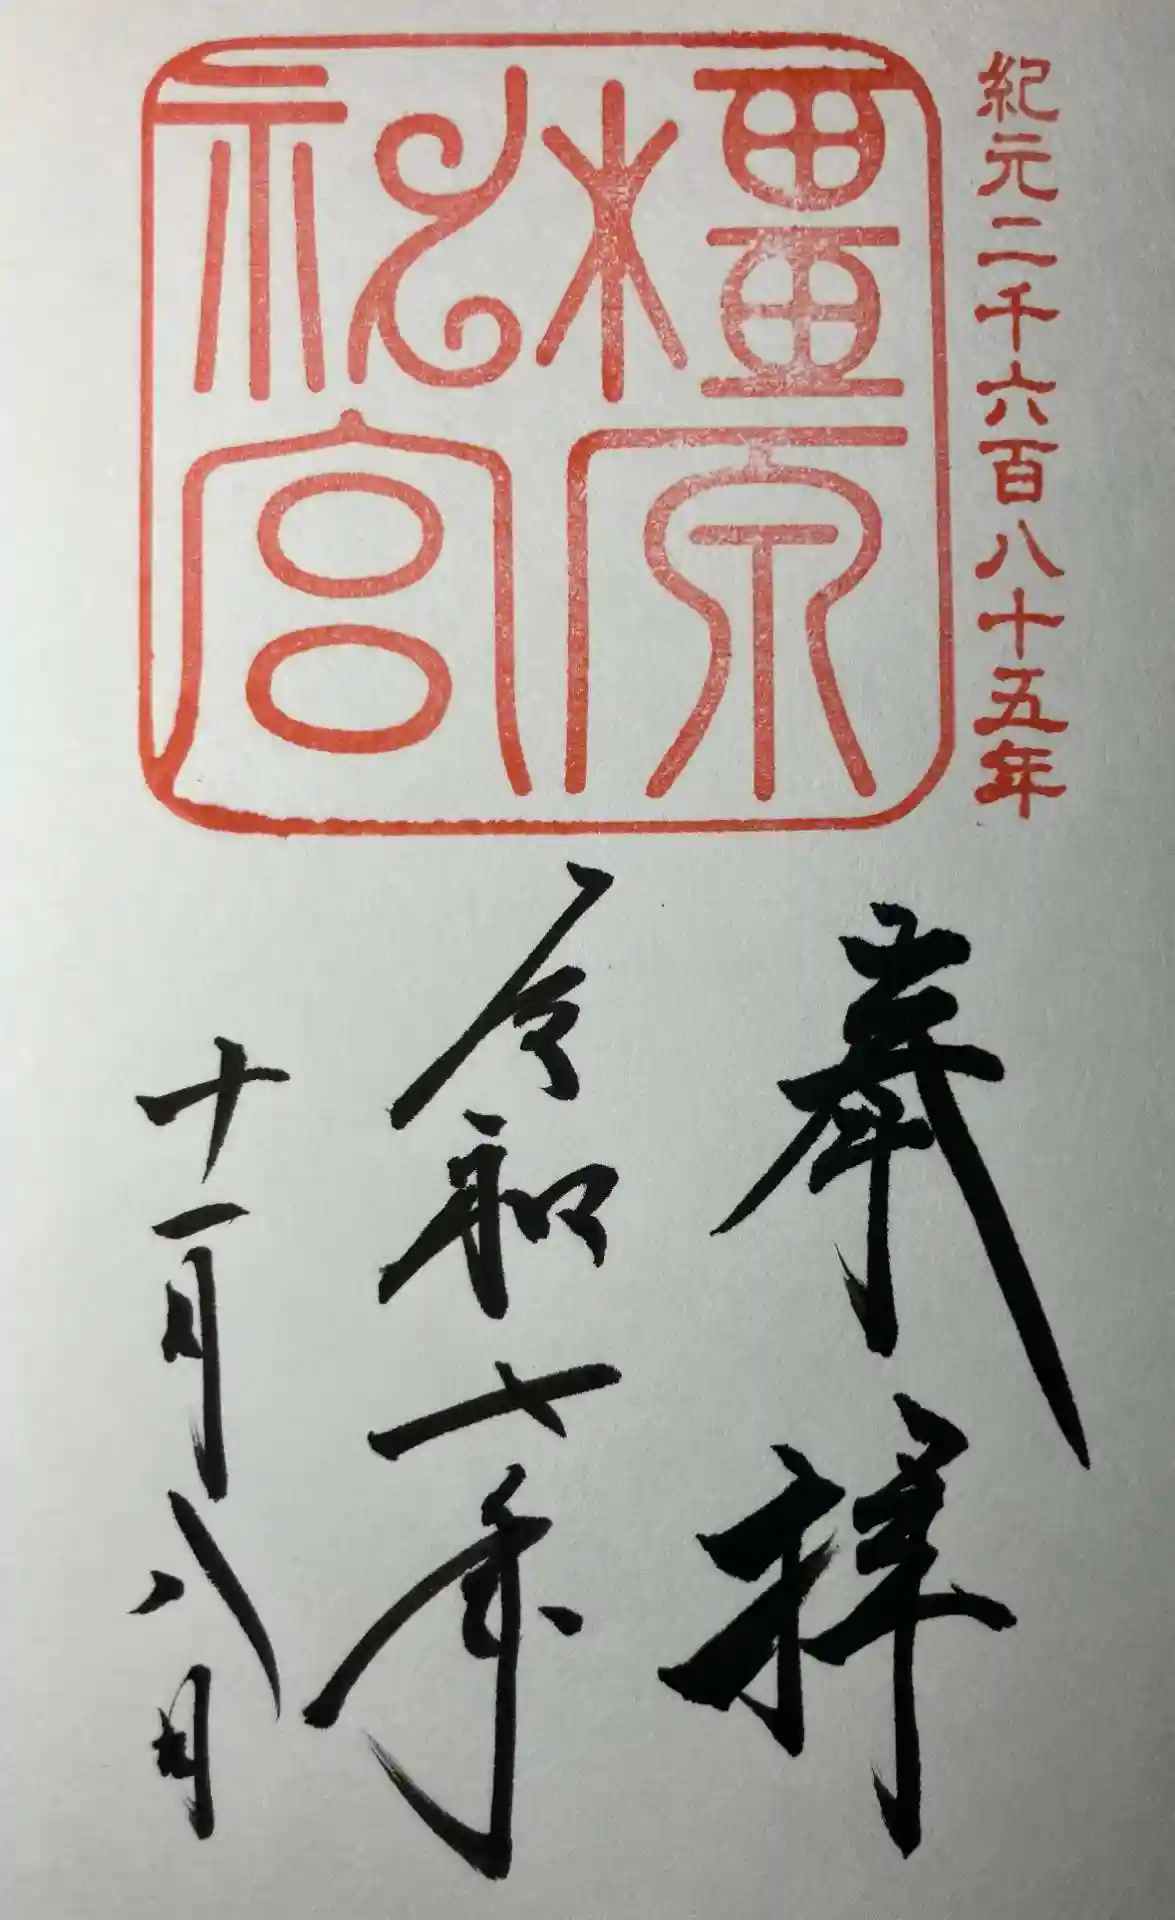 紀元二千六百八十五年
橿原
神宮
奉拝
令和七年
十一月八日